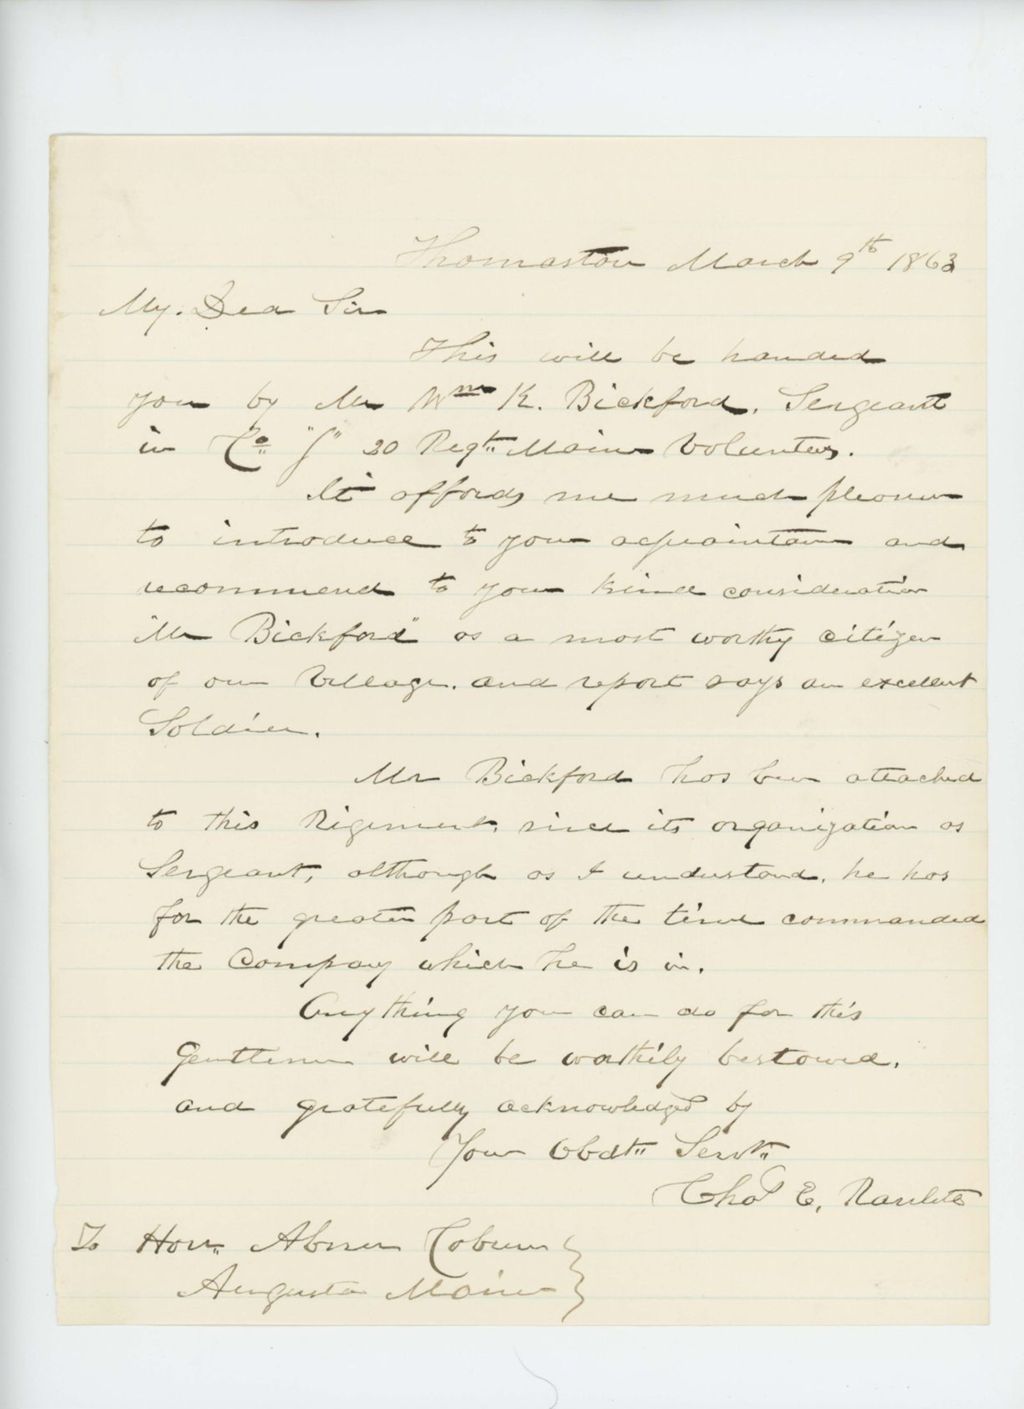 Thomaston March 9th 1863
My. Dea Sir
This will be handed
you by Mr Wm K. Bickford. Sergeant
in Co "I" 20 Regt Maine Volunteers.
It affords me much pleasure
to introduce to your acquaintance and
recommend to your kind consideration
"Mr Bickford" as a most worthy citizen
of our Village. and report says an excellent
Soldier.
Mr Bickford has been attached
to this Rigement, since its organization as
Sergeant, although as I understand, he has
for the greater part of the time commanded
the Company which he is in.
Any thing you can do for this
Gentleman will be worthily bestowed.
and gratefully acknowledged by
Your Obdt Servt
Chas E, Ranlett
To Hon. Abner Coburn
Augusta Maine